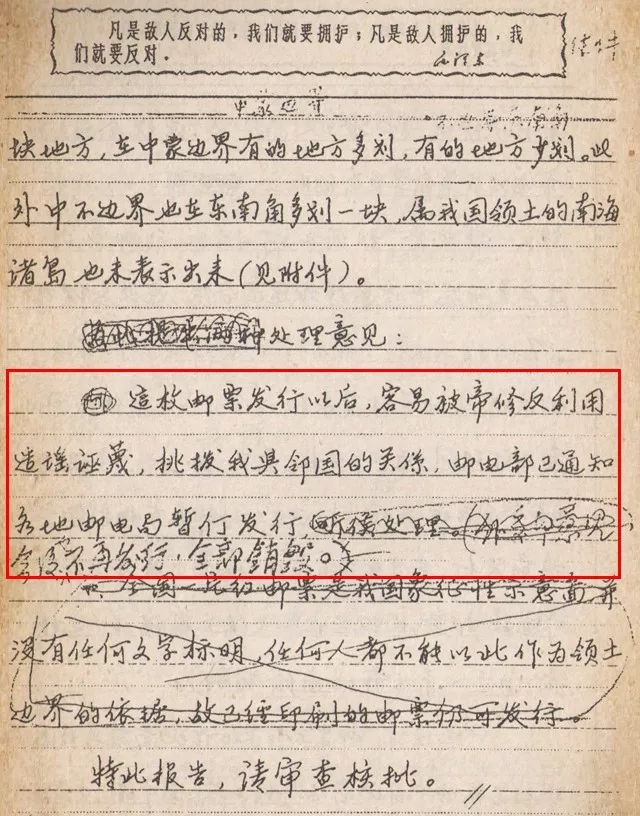 凡是敌人反对的，我们就要拥护；凡是敌人拥护的，我
们就要反对。
毛泽东
中蒙边界
块地方，在中蒙边界有的地方多划，有的地方少划。此
外中不边界也在东南角多划一块，属我国领土的南海
诸岛也未表示出来（见附件）。
处理意见：
这枚邮票发行以后，容易被帝修反利用
造谣诬蔑，挑拨我与邻国的关係，邮电部已通知
各地邮电局暂仃发行，听候处理。
今后不再发行，全部销毁。
全国一片红邮票是我国象征性示意图并
没有任何文字标明，任何人都不能以此作为领土
边界的依据，故已经印刷的邮票仍可发行。
特此报告，请审查核批。